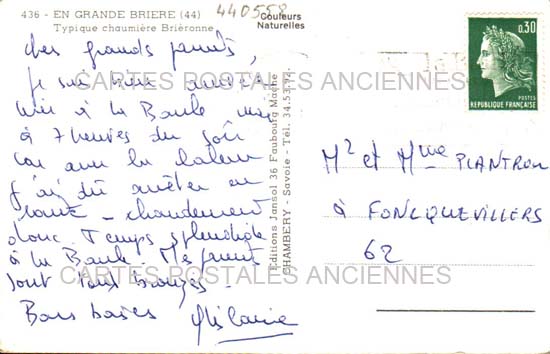 436 - EN GRANDE BRIERE (44)
Typique chaumière Brièronne
440558
Couleurs
Naturelles
Chers grands parents,
Je suis bien arrivée
hier à la Baule mais
à 7 heures du soir
car avec la chaleur
j'ai dû arrêter en
route - chaudement
donc. Temps splendide
à la Baule. Mes parents
sont tous bronzés.
Bons baisers
Editions Jansol 36 Faubourg Mache
CHAMBERY - Savoie - Tél. 34.53.72.
0,30
POSTES
REPUBLIQUE FRANÇAISE
Mr et Mme PLANTRON
à FONCQUEVILLERS
62
CARTES POSTALES ANCIENNES
CARTES POSTALES ANCIENNES